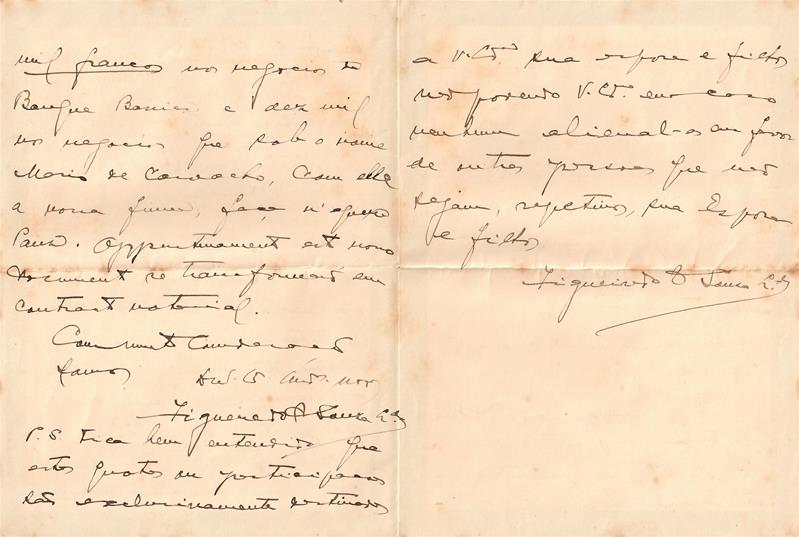 mil francos nos negocios do
Banque Bania e dez mil
nos negocios que sob o nome
Mario de Carvalho, com elle
a nossa firma, faça n'aquella
Opportunamente este nosso
documento se transformará em
contracto notarial.
Com muita Consideração
Somos
De V. Cia
Figueiredo & Souza Lda
P.S. Fica bem entendido que
estas quotas ou participações
são exclusivamente destinadas
a V. sua esposa e filhos
não podendo V. em caso
nenhum alienal-as em favor
de outras pessoas que não
sejam, respectivos, sua Esposa
e filhos
Figueiredo & Souza Lda